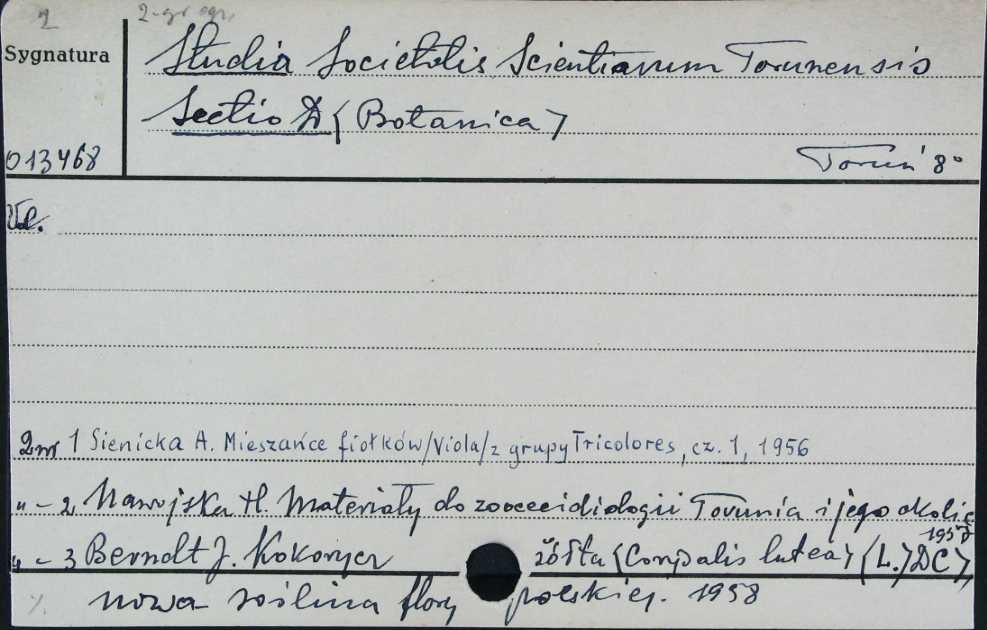 2 2-gr ogr.
Sygnatura
Studia Societatis Scientiarum Torunensis
Sectio D (Botanica)
013468
Toruń 8°
Vol.
2 nr 1 Sienicka A. Mieszańce fiołków/Viola/z grupy Tricolores, cz. 1, 1956
" - 2, Nawojska H. Materiały do zoocecidiologii Torunia i jego okolic
1957
" - 3 Berndt J. Kokorycz żółta (Corydalis lutea) (L.) DC),
nowa roślina flory polskiej. 1958